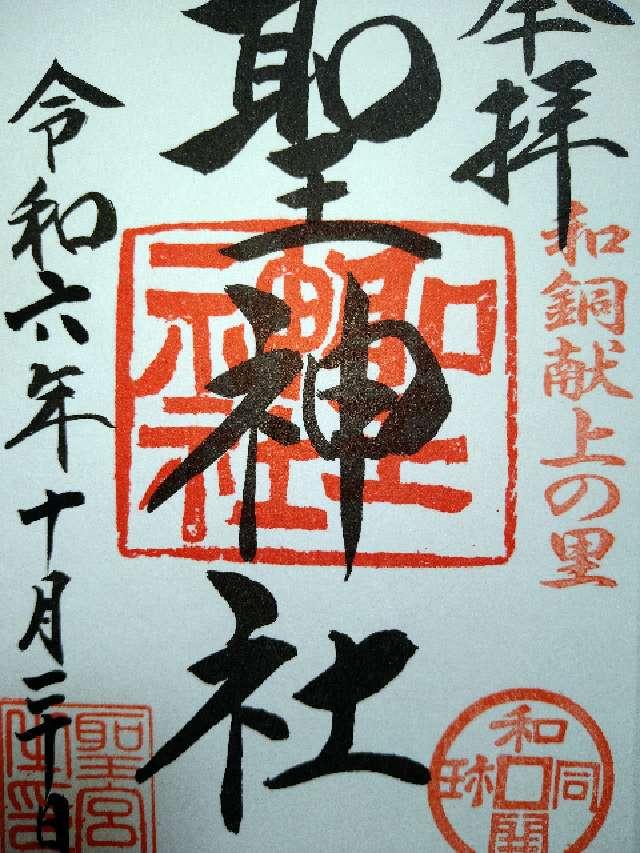 奉拝
和銅献上の里
聖神社
聖神社
令和六年十月二十日
和同開珎
聖宮